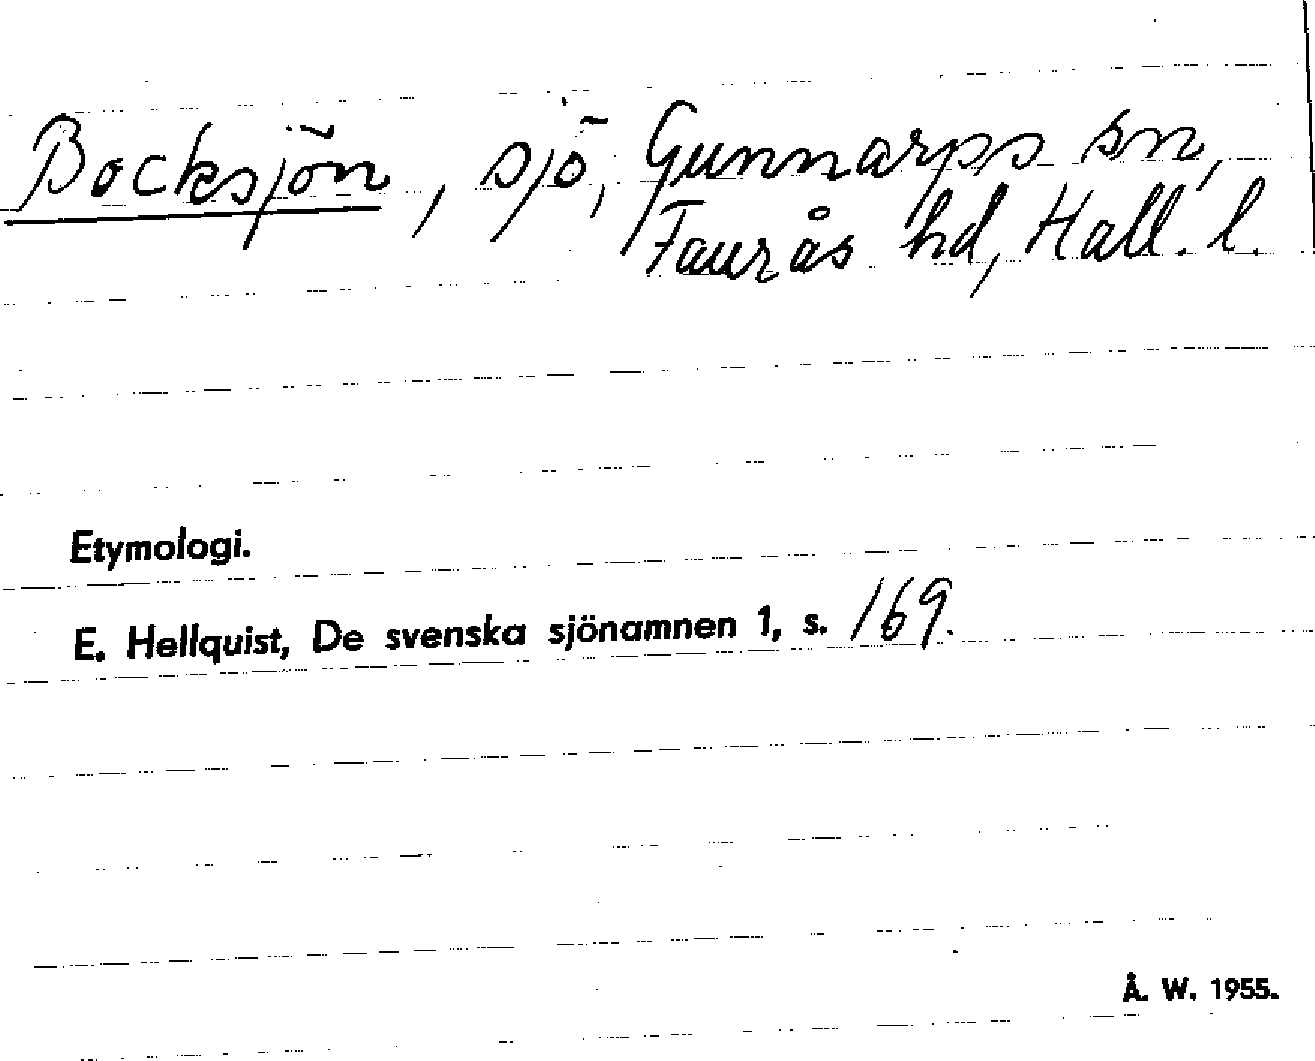 Bocksjön, sjö, Gunnarps sn,
Faurås hd, Hall. l.
Etymologi.
E. Hellquist, De svenska sjönamnen 1, s. 169.
Å. W. 1955.